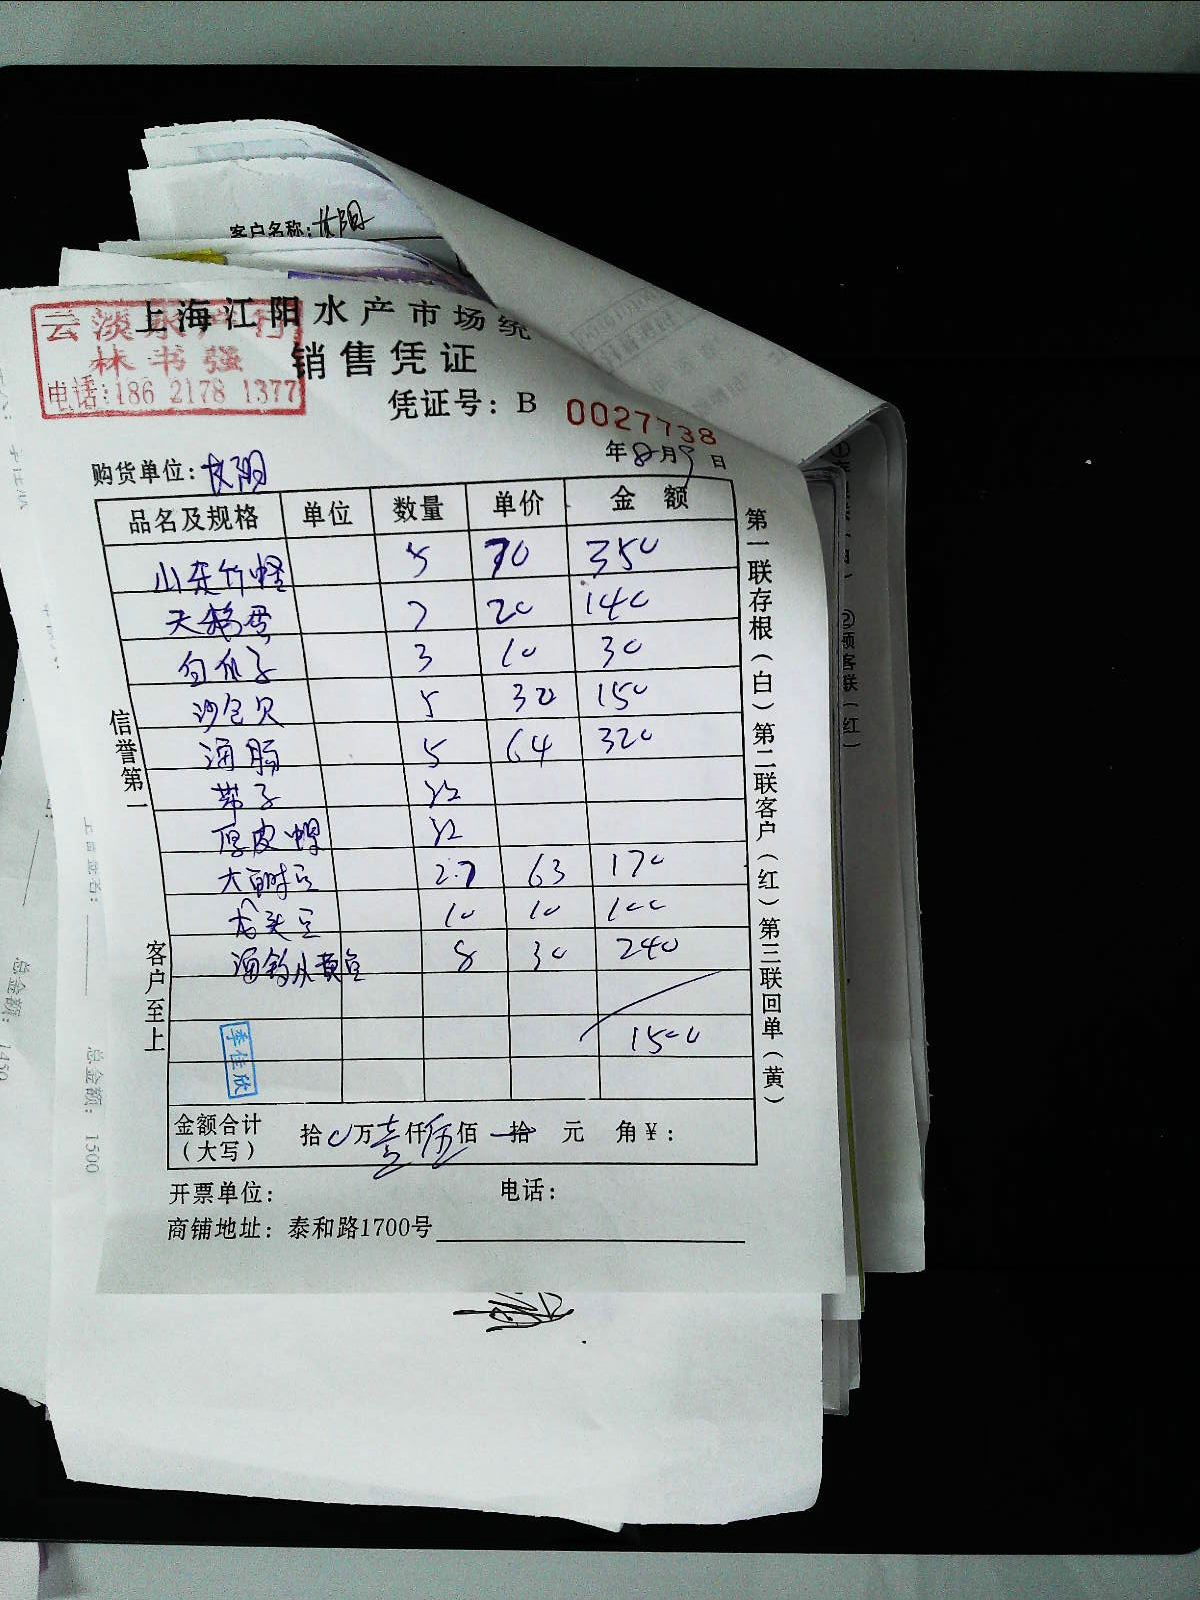 客户名称:
上海江阳水产市场统
云淡水产行
林书强
电话:186 2178 1377
销售凭证
凭证号: B 0027738
年8月9日
购货单位: 
品名及规格 单位 数量 单价 金额
山东竹蛏 5 70 350
天鹅蛋 7 20 140
白瓜子 3 10 30
沙包贝 5 30 150
海肠 5 64 320
带子
厚皮
大 2.7 63 170
龙头 10 10 100
海 黄 8 30 240
1500
季佳欣
金额合计 拾0万壹仟伍佰 拾 元 角¥:
(大写)
开票单位: 电话:
商铺地址: 泰和路1700号
信誉第一
客户至上
第一联存根(白)第二联客户(红)第三联回单(黄)
②顾客联(红)
总金额: 1500
总金额: 1450